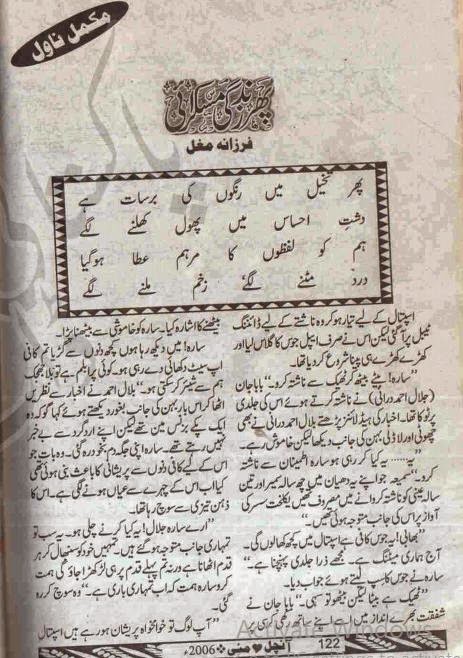 مکمل ناول
پھر زندگی مسکرائی
فرزانہ مغل
پھر تخیل میں رنگوں کی برسات ہے
دشتِ احساس میں پھول کھلنے لگے
ہم کو لفظوں کا مرہم عطا ہوگیا
درد مٹنے لگے، زخم ملنے لگے
اسپتال کے لیے تیار ہو کر وہ ناشتے کے لیے ڈائننگ
ٹیبل پر آ گئی لیکن اس نے صرف ایپل جوس کا گلاس لیا اور
کھڑے کھڑے ہی پینا شروع کر دیا تھا۔
”سارہ! بیٹے بیٹھ کر ٹھیک سے ناشتہ کرو۔“ بابا جان
(جلال احمد درانی) نے ناشتہ کرتے ہوئے اس کی جلدی
پر ٹوکا تھا۔ اخبار کی ہیڈ لائنز پڑھتے بلال درانی نے بھی
چھوٹی اور لاڈلی بہن کی جانب دیکھا لیکن خاموش رہے۔
”یہ...... یہ کیا کر رہی ہو سارہ اطمینان سے ناشتہ
کرو۔“ سمیعہ جو اپنے دھیان میں چھ سالہ میر اور تین
سالہ عینی کو ناشتہ کروانے میں مصروف تھیں یکلخت سسر کی
آواز پر اس کی جانب متوجہ ہوئی تھیں۔
”بھابی! یہ جوس کافی ہے اسپتال میں کچھ کھا لوں گی۔
آج ہماری میٹنگ ہے۔ مجھے ذرا جلدی پہنچنا ہے۔“
سارہ نے جوس کا سپ لیتے ہوئے جواب دیا۔
”ٹھیک ہے بیٹا لیکن بیٹھو تو سہی۔“ بابا جان نے
شفقت بھرے انداز میں اسے اپنے ساتھ رکھی کرسی پر
بیٹھنے کا اشارہ کیا۔ سارہ کو خاموشی سے بیٹھنا پڑا۔
سارہ! میں دیکھ رہا ہوں کچھ دنوں سے گڑیا تم کافی
اپ سیٹ دکھائی دے رہی ہو۔ کوئی پرابلم ہے تو بلا جھجک
ہم سے شیئر کر سکتی ہو۔“ بلال احمد نے اخبار سے نظریں
اٹھا کر اس بار بہن کی جانب بغور دیکھتے ہوئے کہا گو کہ وہ
ایک پکے بزنس مین تھے لیکن اپنے ارد گرد سے بے خبر
نہیں رہتے تھے۔ سارہ اپنی جگہ دم بخود رہ گئی۔ وہ بات جو
اس کے لیے کافی دنوں سے پریشانی کا باعث بنی ہوئی تھی
کیا اب اس کے چہرے سے عیاں ہونے لگی ہے۔ اس کا
ذہن تیزی سے سوچ رہا تھا۔
”ارے سارہ جلال! یہ کیا کرنے چلی ہو۔ یہ سب تو
تمہاری جانب متوجہ ہو گئے ہیں۔ تمہیں خود کو سنبھال کر ہر
قدم اٹھانا ہے ورنہ تم پہلے قدم پر ہی لڑکھڑا جاؤ گی ہمت
کرو سارہ ہمت کہ اب تمہاری باری ہے۔“ وہ سوچ کر رہ
گئی۔
”آپ لوگ تو خوامخواہ پریشان ہو رہے ہیں اسپتال
آنچل ♥ مئی ❖ 2006ء
122